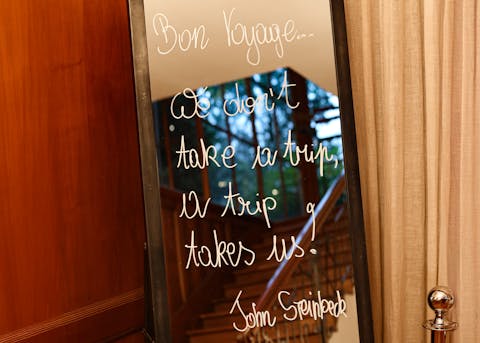 Bon Voyage...
We don't
take a trip,
a trip
takes us!
John Steinbeck